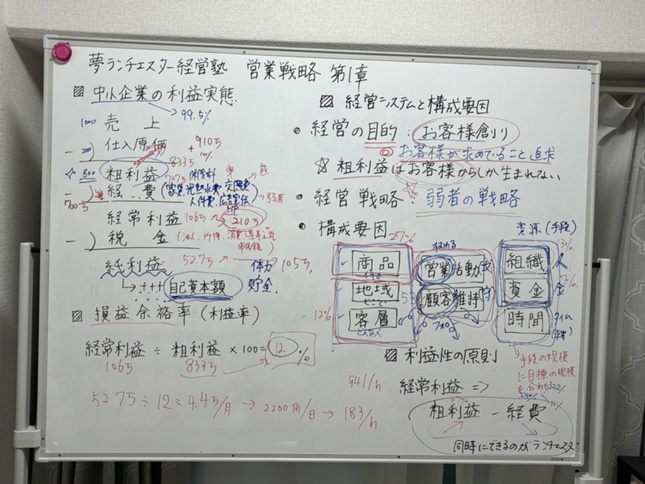 夢ランチェスター経営塾 営業戦略 第1章
▨ 中小企業の利益実態
→ 99.5%
1000 売上
-) 仕入原価 + 910万
10%
粗利益 833万
-) 経費 (家賃 光熱水費 交際費
人件費 広告宣伝
経常利益 106万 210万
-) 税金
純利益 52.7万 体力 105万
→ ++++ 自己資本額 貯金
▨ 損益余裕率 (利益率)
経常利益 ÷ 粗利益 × 100 = 12 %
106万 833万
52.7万 ÷ 12 = 4.4万/月 → 2200円/日 → 183/h
941/h
▨ 経営システムと構成要因
• 経営の目的:お客様創り
◎ お客様が求めていること 追求
☆ 粗利益はお客様からしか生まれない
• 経営戦略 弱者の戦略
• 構成要因 27% 資源(手段)
商品 営業活動 組織 人
地域 顧客維持 資金 金
客層 時間
12%
▨ 利益性の原則
経常利益 =>
粗利益 - 経費
手段の規模
同時にできるのがランチェスタ